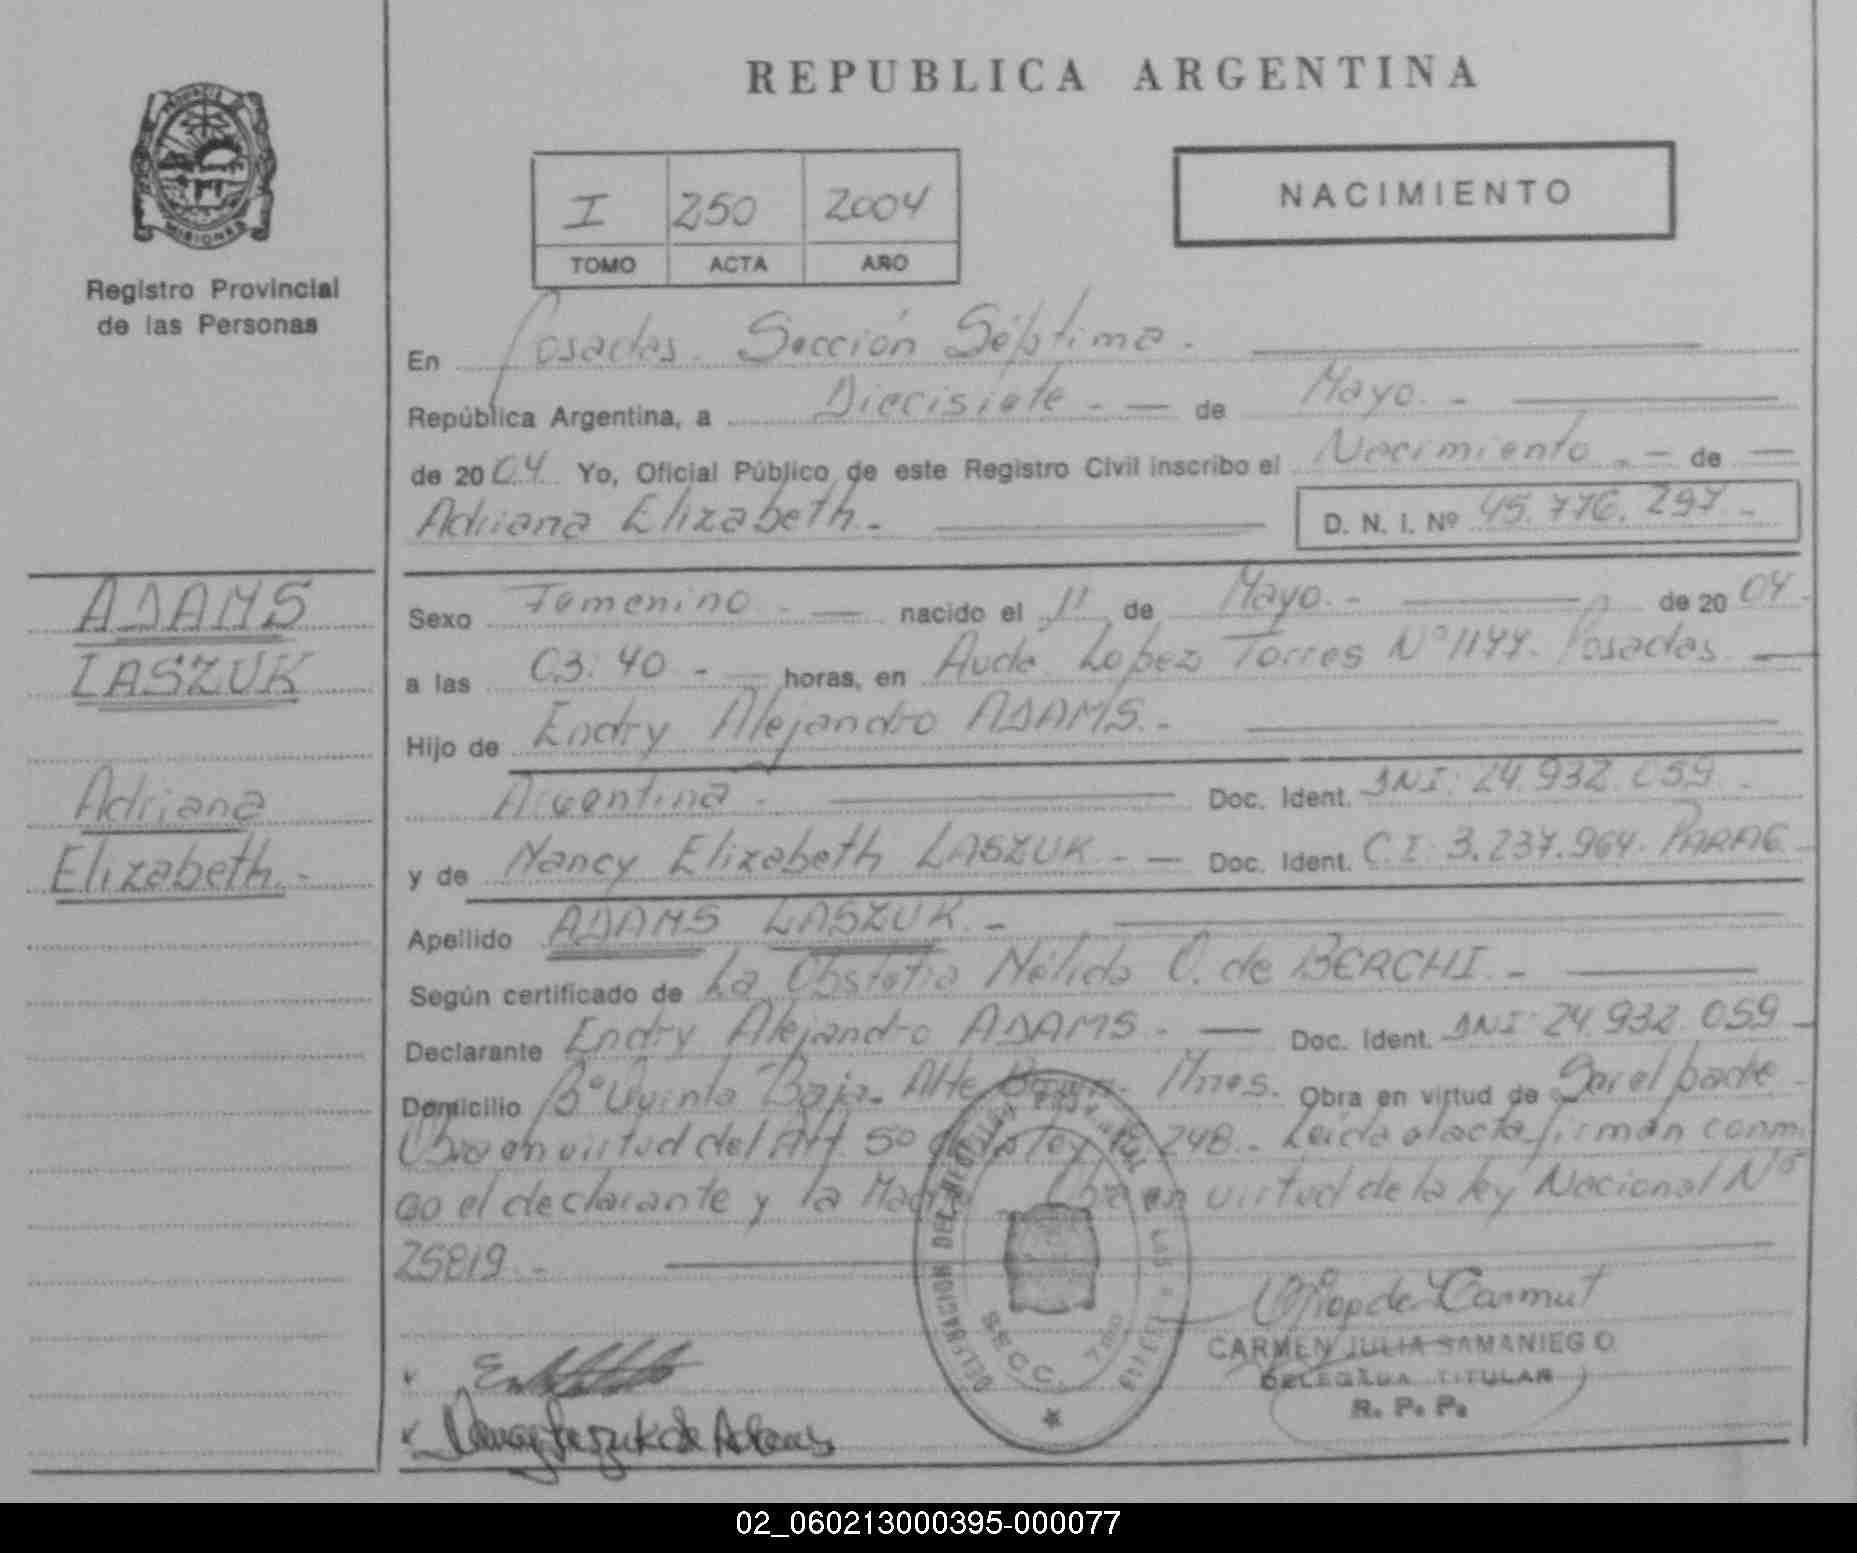 REPUBLICA ARGENTINA
PROVINCIA DE
MISIONES
Registro Provincial
de las Personas
I 250 2004
TOMO ACTA AÑO
NACIMIENTO
En Posadas. Sección Séptima.
República Argentina, a Diecisiete.- de Mayo.-
de 2004 Yo, Oficial Público de este Registro Civil inscribo el Nacimiento.- de
Adriana Elizabeth.-
D. N. I. Nº 45.776.297.-
ADAMS
LASZUK
Adriana
Elizabeth.-
Sexo Femenino.- nacido el 11 de Mayo.- de 2004.-
a las 03:40.- horas, en Avda. Lopez Torres Nº 1177. Posadas
Hijo de Endry Alejandro ADAMS.-
Argentina.- Doc. Ident. DNI: 24.932.059.-
y de Nancy Elizabeth LASZUK.- Doc. Ident. C.I. 3.237.964. PARAG.-
Apellido ADAMS LASZUK.-
Según certificado de La Obstetra Nélida O. de BERCHI.-
Declarante Endry Alejandro ADAMS.- Doc. Ident. DNI: 24.932.059-
Domicilio Bº Quinta Baja. Alte Mnes. Obra en virtud de Ser el padre-
Obra en virtud del Art. 5º ley 248.- Leida el acta firman conmi
go el declarante y la Madre. Obra en virtud de la ley Nacional Nº
25819.-
SECC. 7
CARMEN JULIA SAMANIEGO
DELEGADA TITULAR
R. P. P.
Nancy Laszuk de Adams
02_060213000395-000077